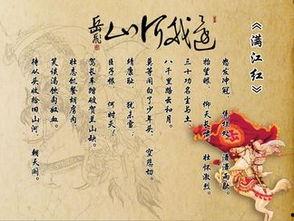 《满江红》
還我河山
岳飛
怒发冲冠 凭栏处 潇潇雨歇。
抬望眼 仰天长啸 壮怀激烈。
三十功名尘与土
八千里路云和月。
莫等闲白了少年头 空悲切
靖康耻 犹未雪。
臣子恨 何时灭。
驾长车踏破贺兰山缺。
壮志饥餐胡虏肉。
笑谈渴饮匈奴血。
待从头收拾旧山河。 朝天阙。